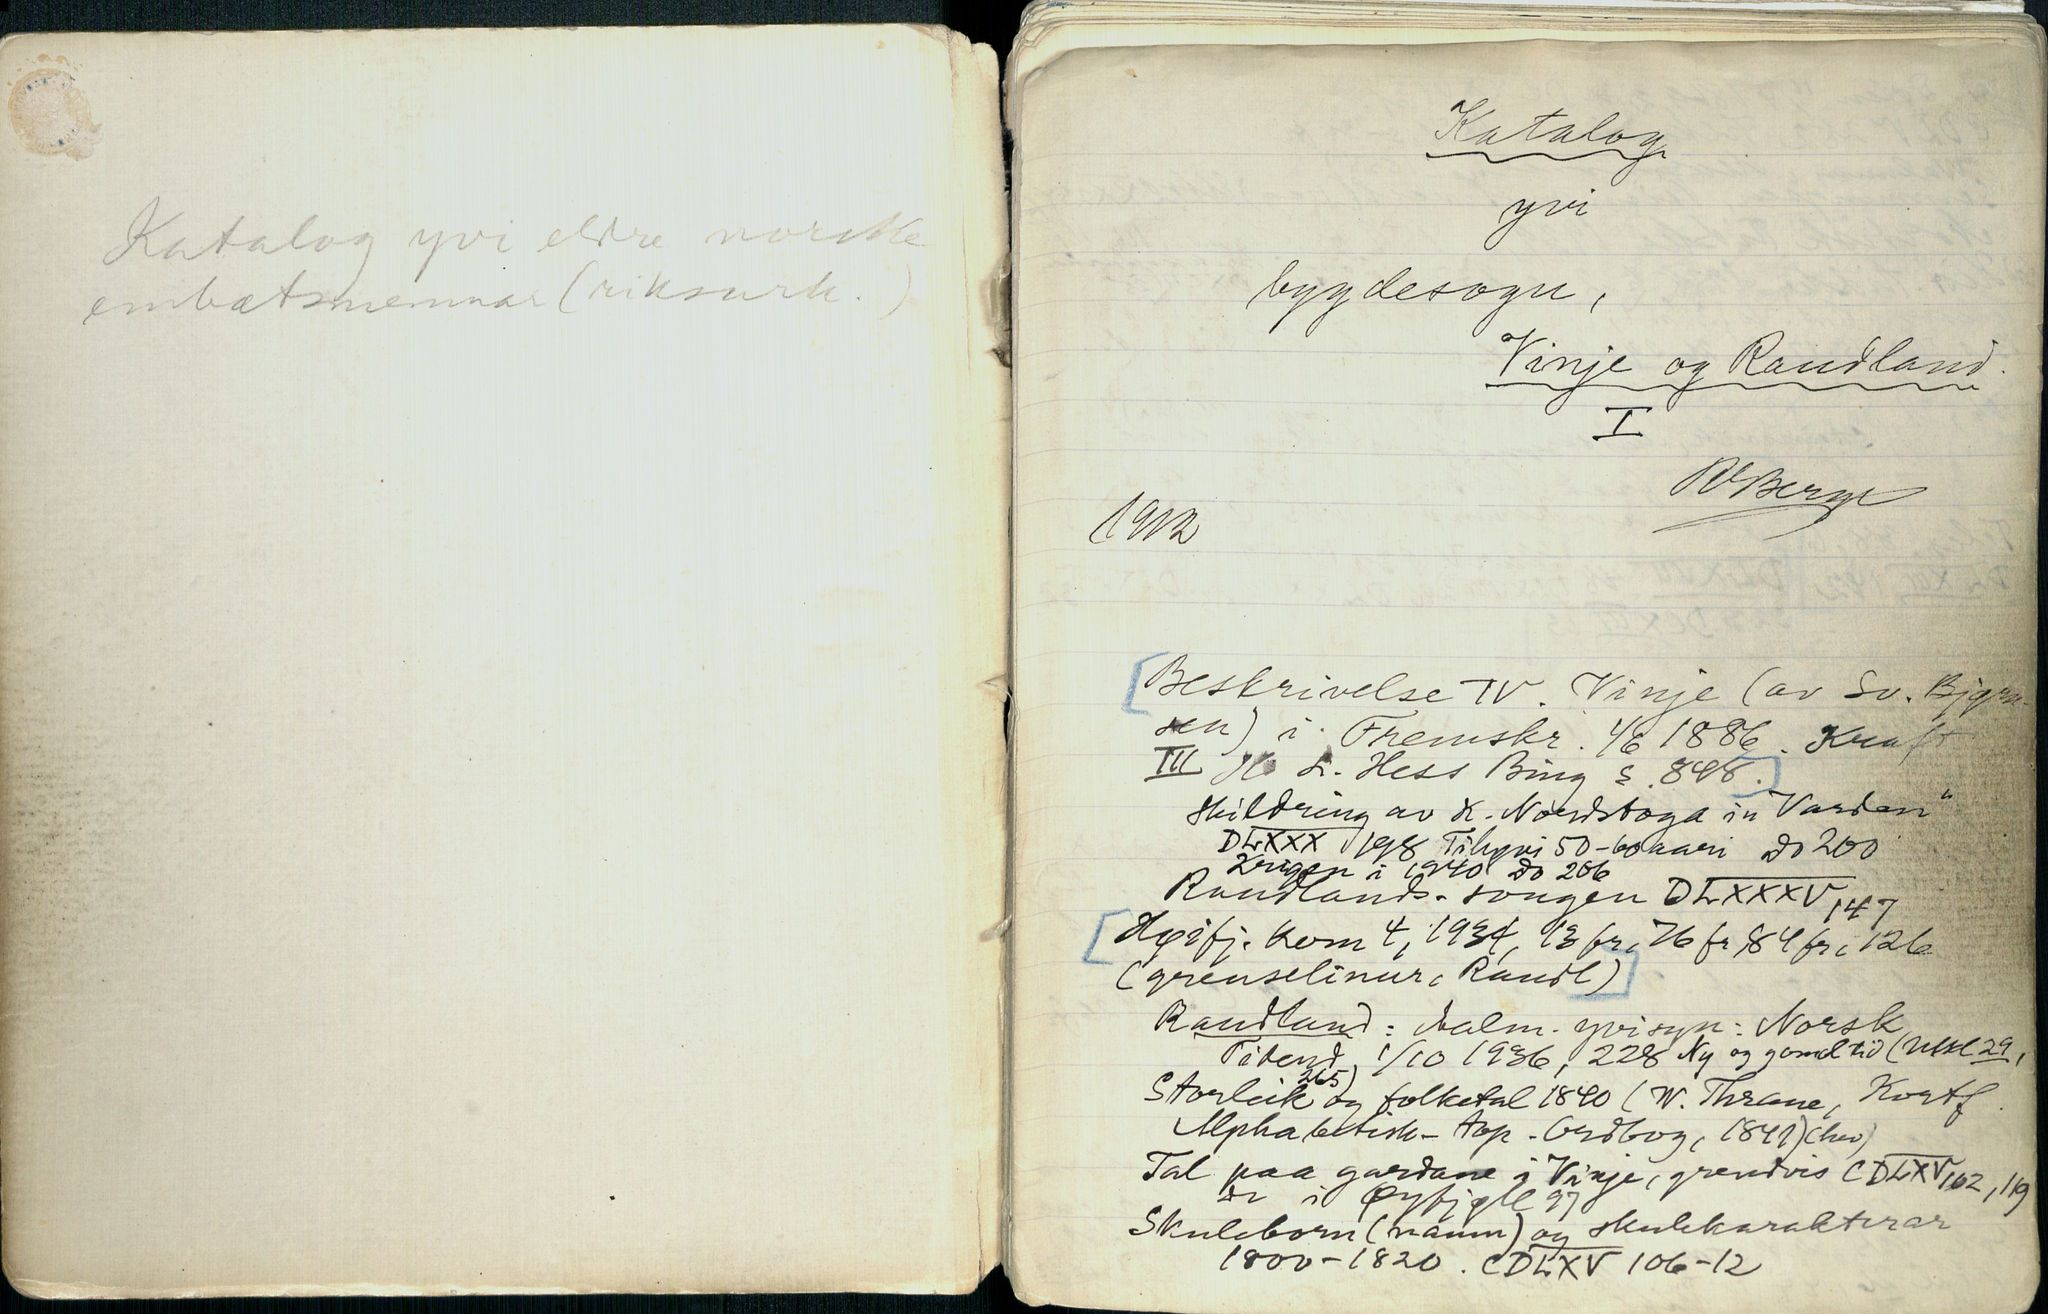 Katalog yvi eldre norske
embætsmennar (riksark.)
Katalog
yvi
bygdesogu,
Vinje og Raudland.
I
RBerge
1912
[Beskrivelse IV. Vinje (av Sv. Bjørn-
sen) i Fremskr. 4/6 1886. Kraft
III L. Hess Bing s. 848.]
Skildring av K. Nordstoga i "Varden"
DLXXX 198 Til yvi 50-60 aari do 200
Krigen i 1940 do 206
Raudlands-songen DLXXXV, 147
[Høifj. kom 4, 1934, 13 fr, 76 fr, 84 fr, 126
(grenselinur, Raudl)]
Raudland: aalm. yvisyn: Norsk
Tidend 1/10 1936, 228 Ny og gamal tid (29,
265)
Storleik og folketal 1840 (W. Thrane, Kortf.
Alphabetisk-top. Ordbog, 1841) (her)
Tal paa gardane i Vinje, grendvis CDLXV 102, 119
do i Øyfjell 97
Skuleborn (namn) og skulekarakterar
1800-1820. CDLXV 106-12